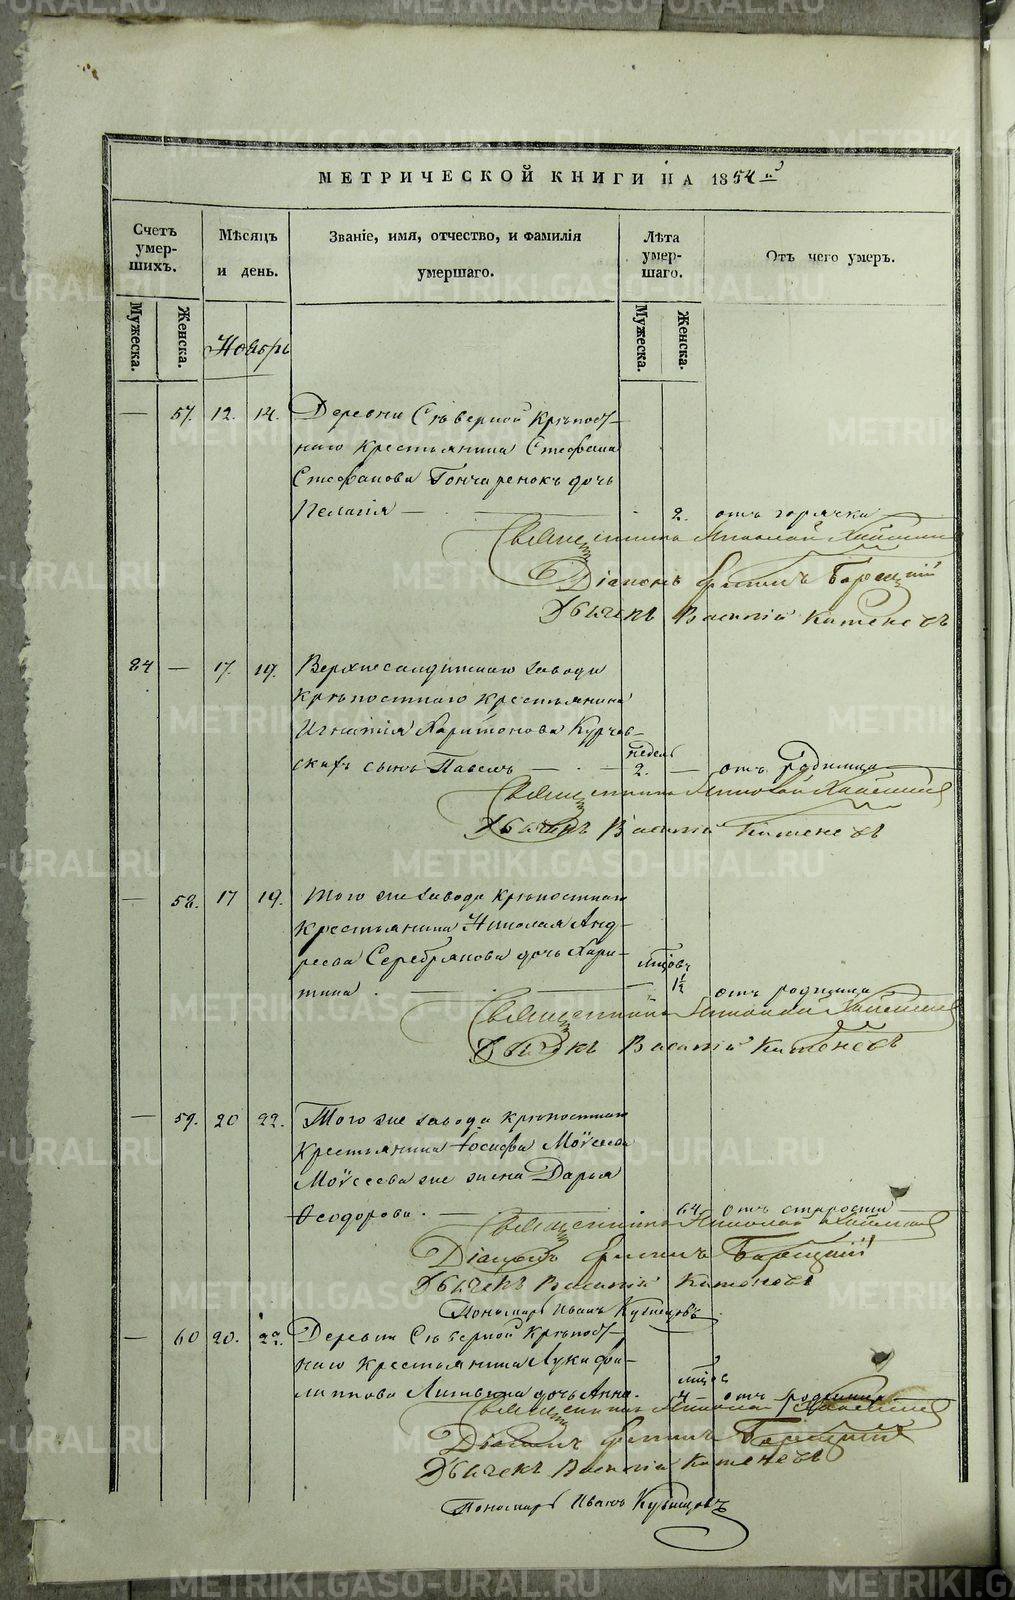 МЕТРИЧЕСКОЙ КНИГИ НА 1854й
Счетъ умер-шихъ.
Мѣсяцъ и день.
Званіе, имя, отчество, и фамилія умершаго.
Лѣта умер-шаго.
Отъ чего умеръ.
Мужеска.
Женска.
Мужеска.
Женска.
Ноябрь
— 57. 12. 14. Деревни Сѣверной Крѣпост-
наго Крестьянина Стефана
Стефанова Гончаренокъ дочь
Пелагія — 2. отъ горячки
Священникъ Николай
Діаконъ Филиппъ
Дьячекъ Василій Китеневъ
84 — 17. 19. Верхнесалдинскаго завода
Крѣпостнаго Крестьянина
Игнатія Харитонова Курчев-
скихъ сынъ Павелъ —
недель
2. — отъ родимца
Священникъ Николай
Дьячекъ Василій Китеневъ
— 58. 17 19. Того же завода Крѣпостнаго
Крестьянина Николая Анд-
реева Серебрякова дочь Хари-
тина
мцовъ
1½ отъ родимца
Священникъ Николай
Дьячекъ Василій Китеневъ
— 59. 20 22. Того же завода Крѣпостнаго
Крестьянина Іосифа Моѵсеева
Моѵсеева же жена Дарья
Ѳеодорова. — 64 отъ старости
Священникъ Николай
Діаконъ Филиппъ
Дьячекъ Василій Китеневъ
Пономарь Иванъ Кузнецовъ
— 60 20. 22. Деревни Сѣверной Крѣпост-
наго Крестьянина Луки Фи-
липпова Литвина дочь Анна.
мцов
4 — отъ родимца
Священникъ Николай
Діаконъ Филиппъ
Дьячекъ Василій Китеневъ
Пономарь Иванъ Кузнецовъ
METRIKI.GASO-URAL.RU